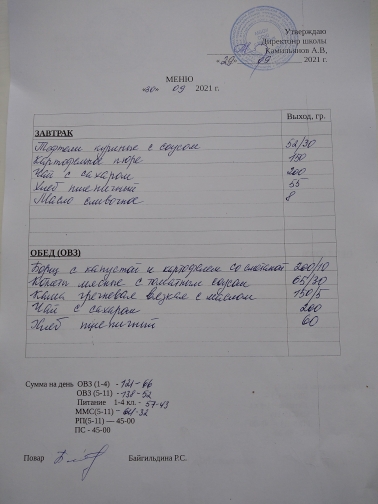 Утверждаю
Директор школы
Камильянов А.В,
«29» 09 2021 г.
МЕНЮ
«30» 09 2021 г.
Выход, гр.
ЗАВТРАК
Тефтели куриные с соусом 52/30
Картофельное пюре 150
Чай с сахаром 200
Хлеб пшеничный 55
Масло сливочное 8
ОБЕД (ОВЗ)
Борщ с капустой и картофелем со сметаной 200/10
Котлеты мясные с томатным соусом 65/30
Каша гречневая вязкая с маслом 150/5
Чай с сахаром 200
Хлеб пшеничный 60
Сумма на день ОВЗ (1-4) - 121-66
ОВЗ (5-11) - 138-52
Питание 1-4 кл. - 57-43
ММС(5-11) - 61-32
РП(5-11) — 45-00
ПС - 45-00
Повар Байгильдина Р.С.